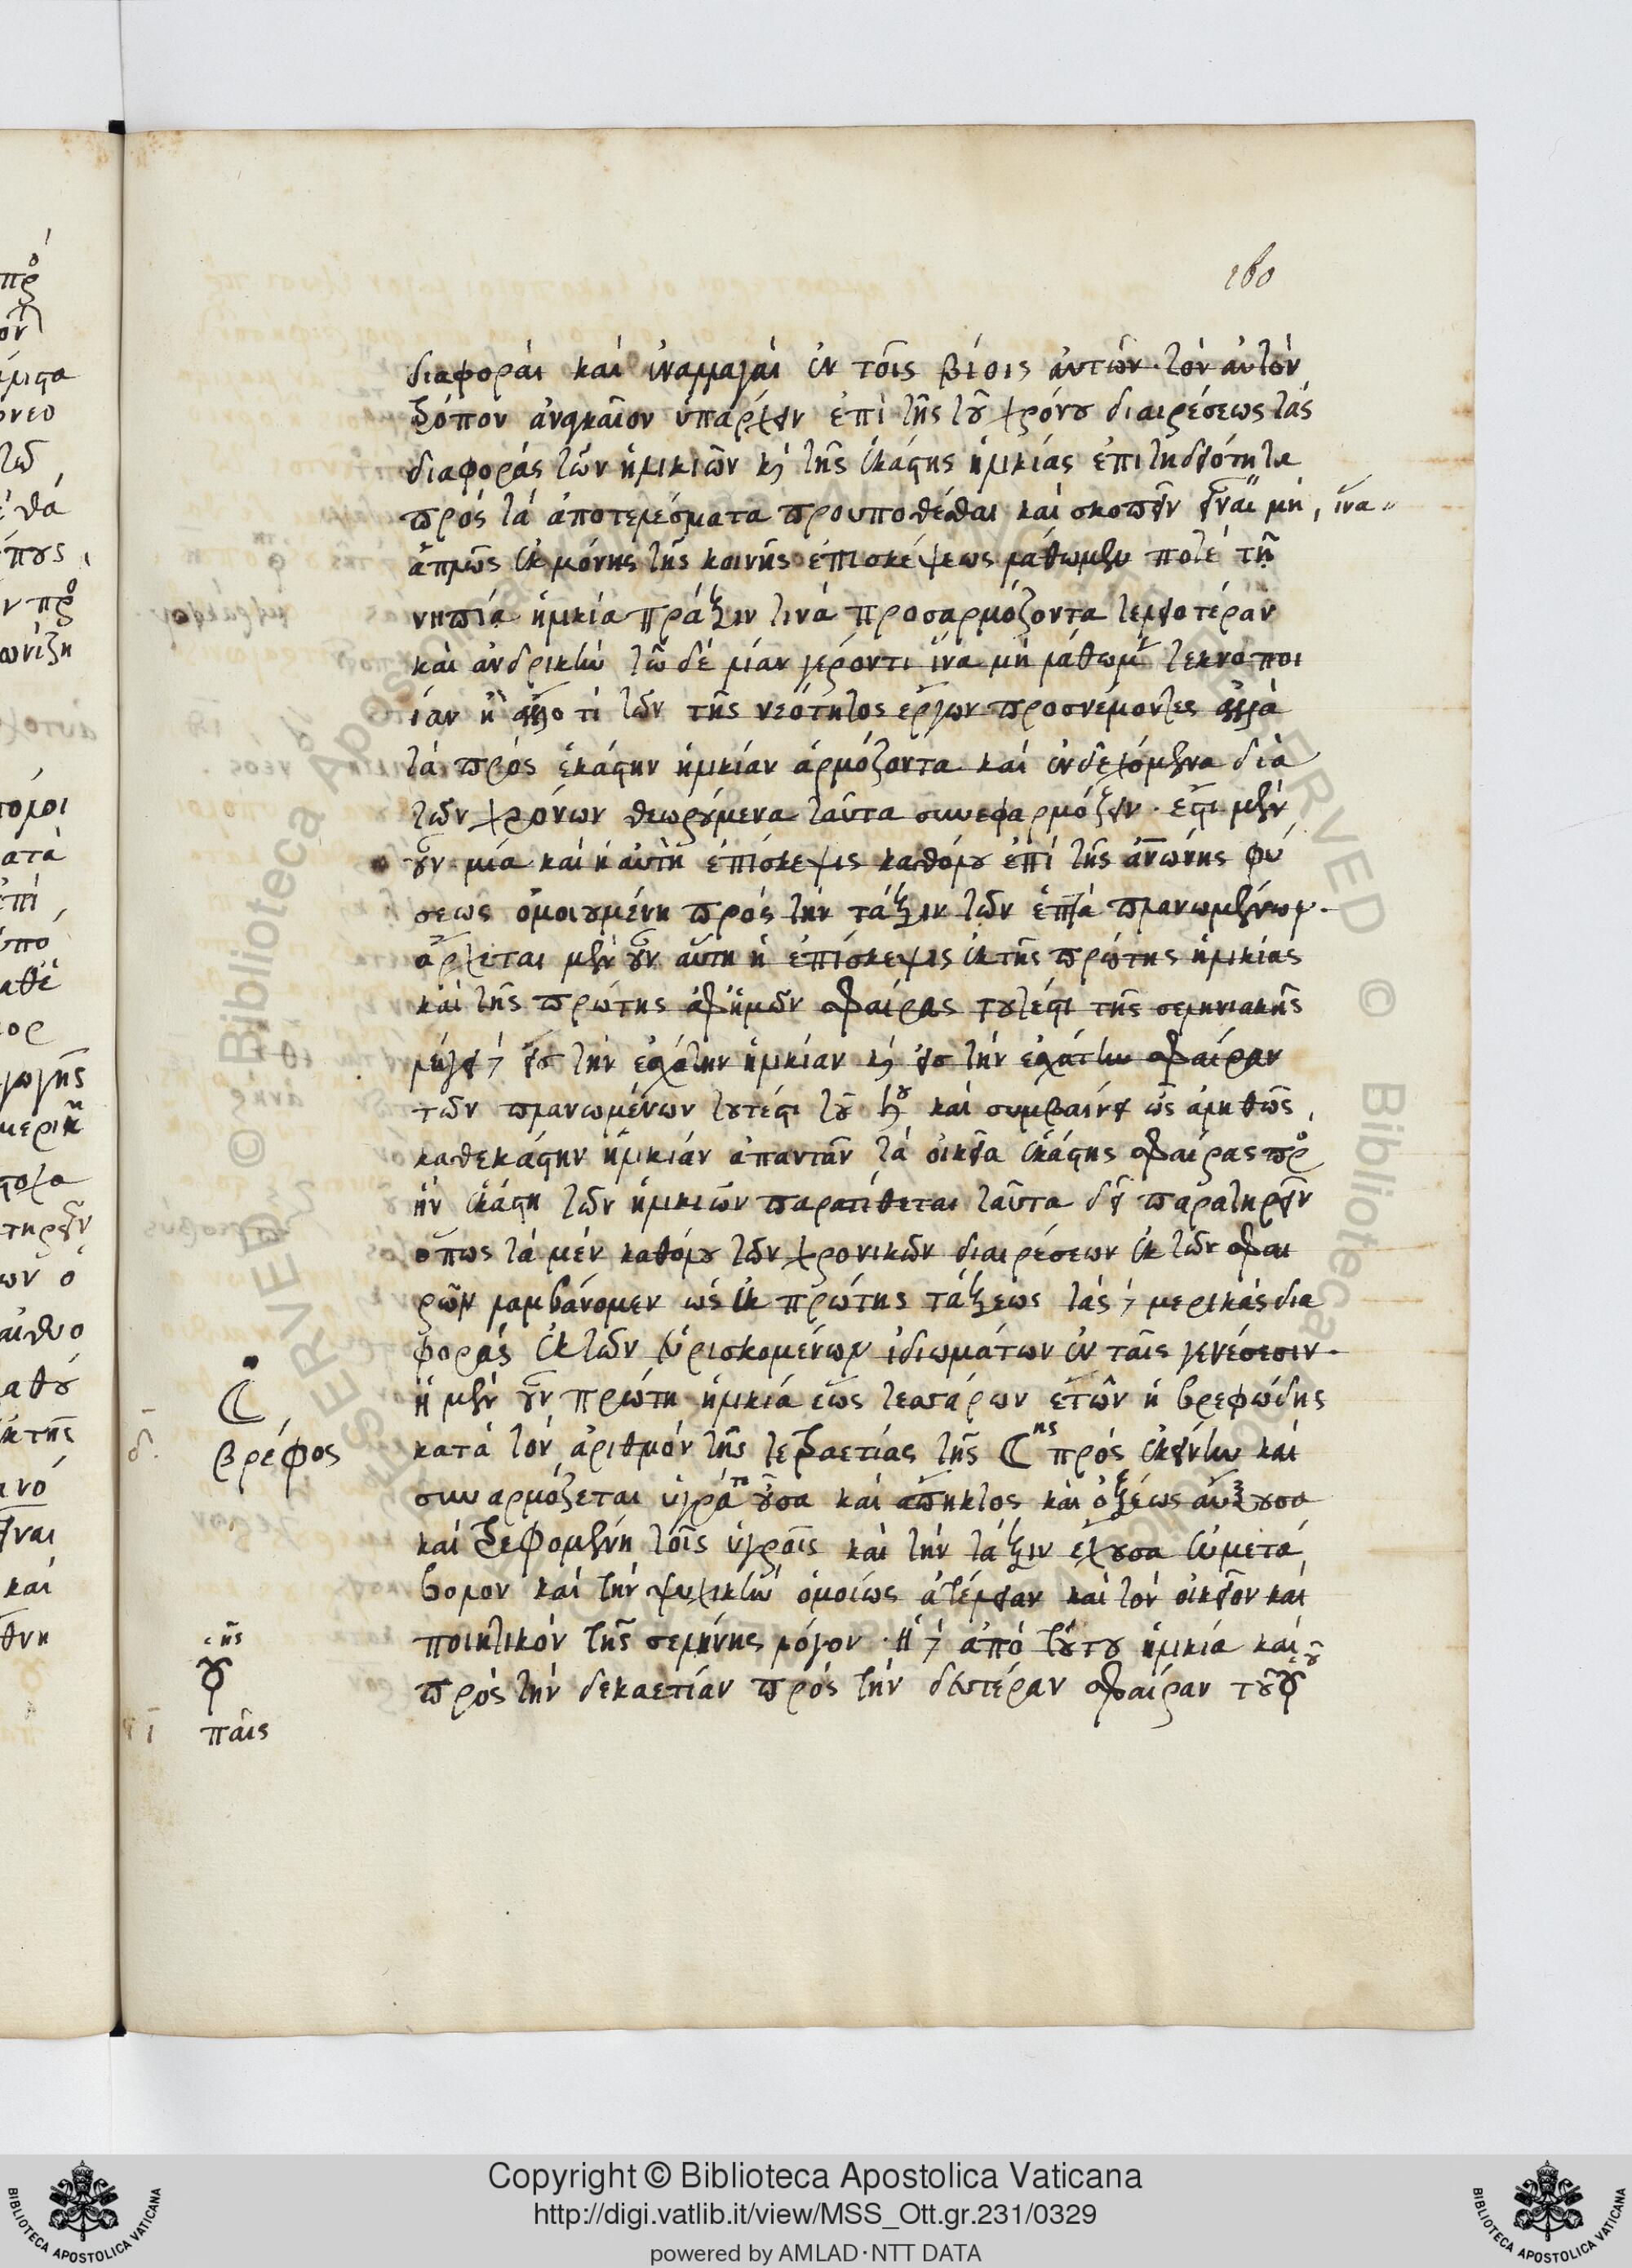 160
διαφοραὶ καὶ ἐναλλαγαὶ ἐν τοῖς βίοις αὐτῶν· τὸν αὐτὸν
τρόπον ἀναγκαῖον ὑπάρχειν ἐπὶ τῆς τοῦ χρόνου διαιρέσεως τὰς
διαφορὰς τῶν ἡλικιῶν κ τῆς ἑκάστης ἡλικίας ἐπιτηδειότητα
πρὸς τὰ ἀποτελέσματα προυποθέσθαι καὶ σκοπεῖν μὴ, ἵνα
ἁπλῶς ἐκ μόνης τῆς κοινῆς ἐπισκέψεως λάθωμεν ποτὲ τῇ
νηπία ἡλικία πράξιν τινὰ προσαρμόζοντα τελειοτέραν
καὶ ἀνδρικὴν τῶ δὲ λίαν γέροντι ἵνα μὴ λάθωμεν τεκνοποι
ίαν ἢ ἄλλο τί τῶν τῆς νεότητος ἔργων προσνέμοντες ἀλλὰ
τὰ πρὸς ἑκάστην ἡλικίαν ἁρμόζοντα καὶ ἐνδεχόμενα διὰ
τῶν χρόνων θεωρούμενα ταῦτα συνεφαρμόζειν· ἔστι μὲν
οὖν μία καὶ ἡ αὐτὴ ἐπίσκεψις καθόλου ἐπὶ τῆς ἀνωνης φύ
σεως ὁμοιουμένη πρὸς τὴν τάξιν τῶν ἑπτὰ πλανωμένων·
ἄρχεται μὲν οὖν αὕτη ἡ ἐπίσκεψις ἐκ τῆς πρώτης ἡλικίας
καὶ τῆς πρώτης ἀφ ἡμῶν σφαίρας τουτέστι τῆς σεληνιακῆς
λήγει δὲ εἰς τὴν ἐσχάτην ἡλικίαν κ εἰς τὴν ἐσχάτην σφαίραν
τῶν πλανωμένων τουτέστι τοῦ ♄ου καὶ συμβαίνει ὡς ἀληθῶς,
καθεκάστην ἡλικίαν ἀπαντᾶν τὰ οἰκεῖα ἑκάστης σφαίρας πρὸς
ἣν ἑκάστη τῶν ἡλικιῶν παρατίθεται ταῦτα δεῖ παρατηρεῖν
ὅπως τὰ μὲν καθόλου τῶν χρονικῶν διαιρέσεων ἐκ τῶν σφαι
ρῶν λαμβάνομεν ὡς ἐκ πρώτης τάξεως τὰς δὲ μερικὰς δια
φορὰς ἐκ τῶν εὑρισκομένων ἰδιωμάτων ἐν ταῖς γενέσεσιν·
ἡ μὲν οὖν πρώτη ἡλικία ἕως τεσσάρων ἐτῶν ἡ βρεφώδης
κατὰ τὸν ἀριθμὸν τῆς τετραετίας τῆς ☾ης πρὸς ἐκείνην καὶ
συναρμόζεται ὑγρά τε οὖσα καὶ ἄπηκτος καὶ ὀξέως αὔξουσα
καὶ τρεφομένη τοῖς ὑγροῖς καὶ τὴν τάξιν ἔχουσα εὐμετά
βολον καὶ τὴν ψυχικὴν ὁμοίως ἀτέλειαν καὶ τὸν οἰκεῖον καὶ
ποιητικὸν τῆς σελήνης λόγον· ἡ δὲ ἀπὸ τούτου ἡλικία καὶ
πρὸς τὴν δεκαετίαν πρὸς τὴν δευτέραν σφαίραν τοῦ ☿οῦ
☾
δ̄.
βρέφος
☿
ῑ
παῖς
Copyright © Biblioteca Apostolica Vaticana
http://digi.vatlib.it/view/MSS_Ott.gr.231/0329
powered by AMLAD·NTT DATA
BIBLIOTECA APOSTOLICA VATICANA
BIBLIOTECA APOSTOLICA VATICANA